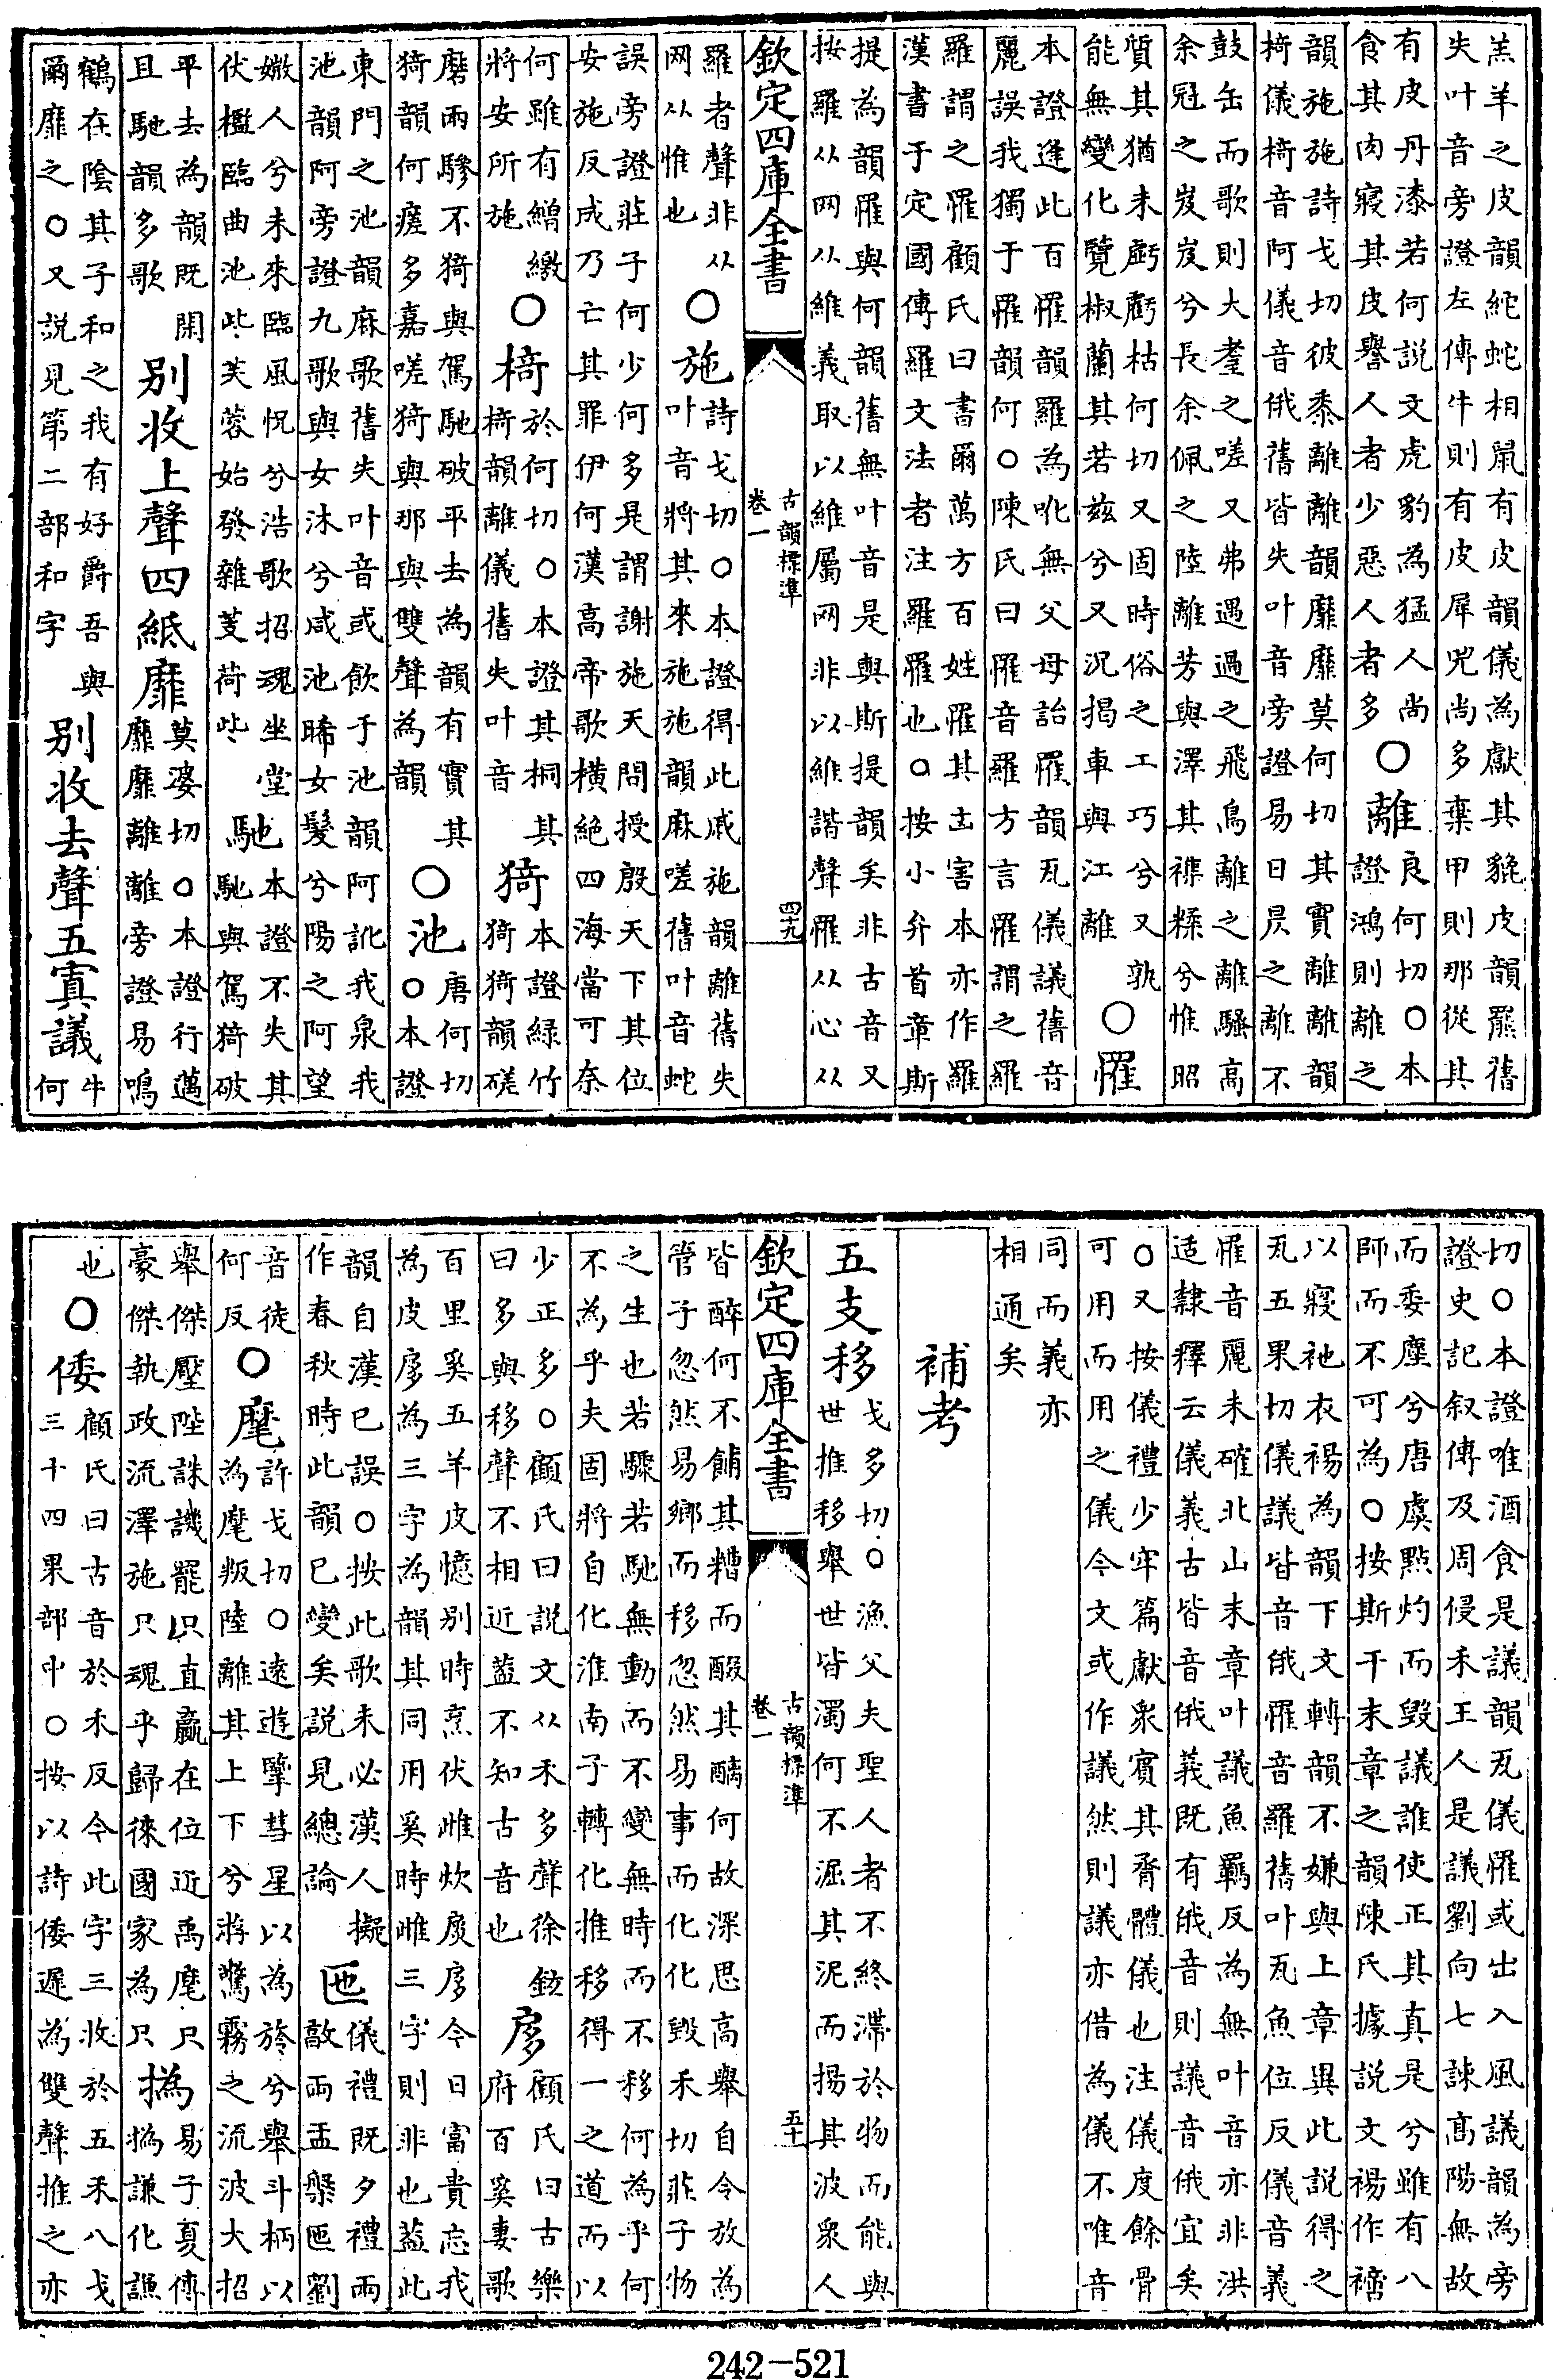 羔羊之皮韻紽蛇相鼠有皮韻儀為獻其貔皮韻羆舊
失叶音旁證左傳牛則有皮犀兕尚多棄甲則那從其
有皮丹漆若何説文虎豹為猛人尚
食其肉寢其皮譽人者少惡人者多
○離
良何切○本
證鴻則離之
韻施施詩戈切彼黍離離韻靡靡莫何切其實離離韻
椅儀椅音阿儀音俄舊皆失叶音旁證易日昃之離不
鼓缶而歌則大耋之嗟又弗遇過之飛鳥離之離騷高
余冠之岌岌兮長余佩之陸離芳與澤其襍糅兮惟昭
質其猶未虧虧枯何切又固時俗之工巧兮又孰
能無變化覽椒蘭其若兹兮又況揭車與江離
○罹
本證逢此百罹韻羅為吪無父母詒罹韻瓦儀議舊音
麗誤我獨于罹韻何○陳氏曰罹音羅方言罹謂之羅
羅謂之罹顧氏曰書爾萬方百姓罹其凶害本亦作羅
漢書于定國傳羅文法者注羅罹也○按小弁首章斯
提為韻罹與何韻舊無叶音是與斯提韻矣非古音又
按羅从网从維義取以維屬网非以維諧聲罹从心从
欽定四庫全書
古韻標準
卷一
四十九
羅者聲非从
网从惟也
○施
詩戈切○本證得此戚施韻離舊失
叶音將其來施施韻麻嗟舊叶音蛇
誤旁證莊子何少何多是謂謝施天問授殷天下其位
安施反成乃亡其罪伊何漢高帝歌横絶四海當可奈
何雖有繒繳
將安所施
○椅
於何切○本證其桐其
椅韻離儀舊失叶音
猗
本證綠竹
猗猗韻磋
磨兩驂不猗與駕馳破平去為韻有實其
猗韻何瘥多嘉嗟猗與那與雙聲為韻
○池
唐何切
○本證
東門之池韻麻歌舊失叶音或飲于池韻阿訛我泉我
池韻阿旁證九歌與女沐兮咸池晞女髮兮陽之阿望
媺人兮未來臨風怳兮浩歌招魂坐堂
伏檻臨曲池些芙蓉始發雜芰荷些
馳
本證不失其
馳與駕猗破
平去為韻既閑
且馳韻多歌
别收上聲四紙靡
莫婆切○本證行邁
靡靡離離旁證易鳴
鶴在陰其子和之我有好爵吾與
爾靡之○又説見第二部和字
别收去聲五寘議
牛
何
切○本證唯酒食是議韻瓦儀罹或出入風議韻為旁
證史記叙傳及周侵禾王人是議劉向七諫髙陽無故
而委塵兮唐虞點灼而毁議誰使正其真是兮雖有八
師而不可為○按斯干末章之韻陳氏據説文禓作𧝐
以寢地衣裼為韻下文轉韻不嫌與上章異此説得之
瓦五果切儀議皆音俄罹音羅舊叶瓦魚位反儀音義
罹音麗未確北山末章叶議魚羈反為無叶音亦非洪
适隸釋云儀義古皆音俄義既有俄音則議音俄宜矣
○又按儀禮少牢篇獻衆賓其脀體儀也注儀度餘骨
可用而用之儀今文或作議然則議亦借為儀不唯音
同而義亦
相通矣
補考
五支移
戈多切○漁父夫聖人者不終滯於物而能與
世推移移舉世皆濁何不淈其泥而揚其波衆人
欽定四庫全書
古韻標準
卷一
五十
皆醉何不餔其糟而醊其醨何故深思高舉自令放為
管子忽然易鄉而移忽然易事而化化毁禾切莊子物
之生也若驟若馳無動而不變無時而不移何為乎何
不為乎夫固將自化淮南子轉化推移得一之道而以
少正多○顧氏曰説文从禾多聲徐鉉
曰多與移聲不相近葢不知古音也
扊
顧氏曰古樂
府百奚妻歌
百里奚五羊皮憶别時烹伏雌炊扊扊今日富貴忘我
為皮扊為三字為韻其同用奚時雌三字則非也葢此
韻自漢已誤○按此歌未必漢人擬
作春秋時此韻已變矣説見總論
匜
儀禮既夕禮兩
敦兩盂槃匜劉
音徒
何反
○麾
許戈切○遠遊擥彗星以為旍兮舉斗柄以
為麾叛陸離其上下兮游驚霧之流波大招
舉傑壓陛誅譏罷只直贏在位近禹麾只
豪傑執政流澤施只魂乎歸徠國家為只
撝
易子夏傳
撝謙化謙
也
○倭
顧氏曰古音於禾反今此字三收於五禾八戈
三十四果部中○按以詩倭遲為雙聲推之亦
242-521